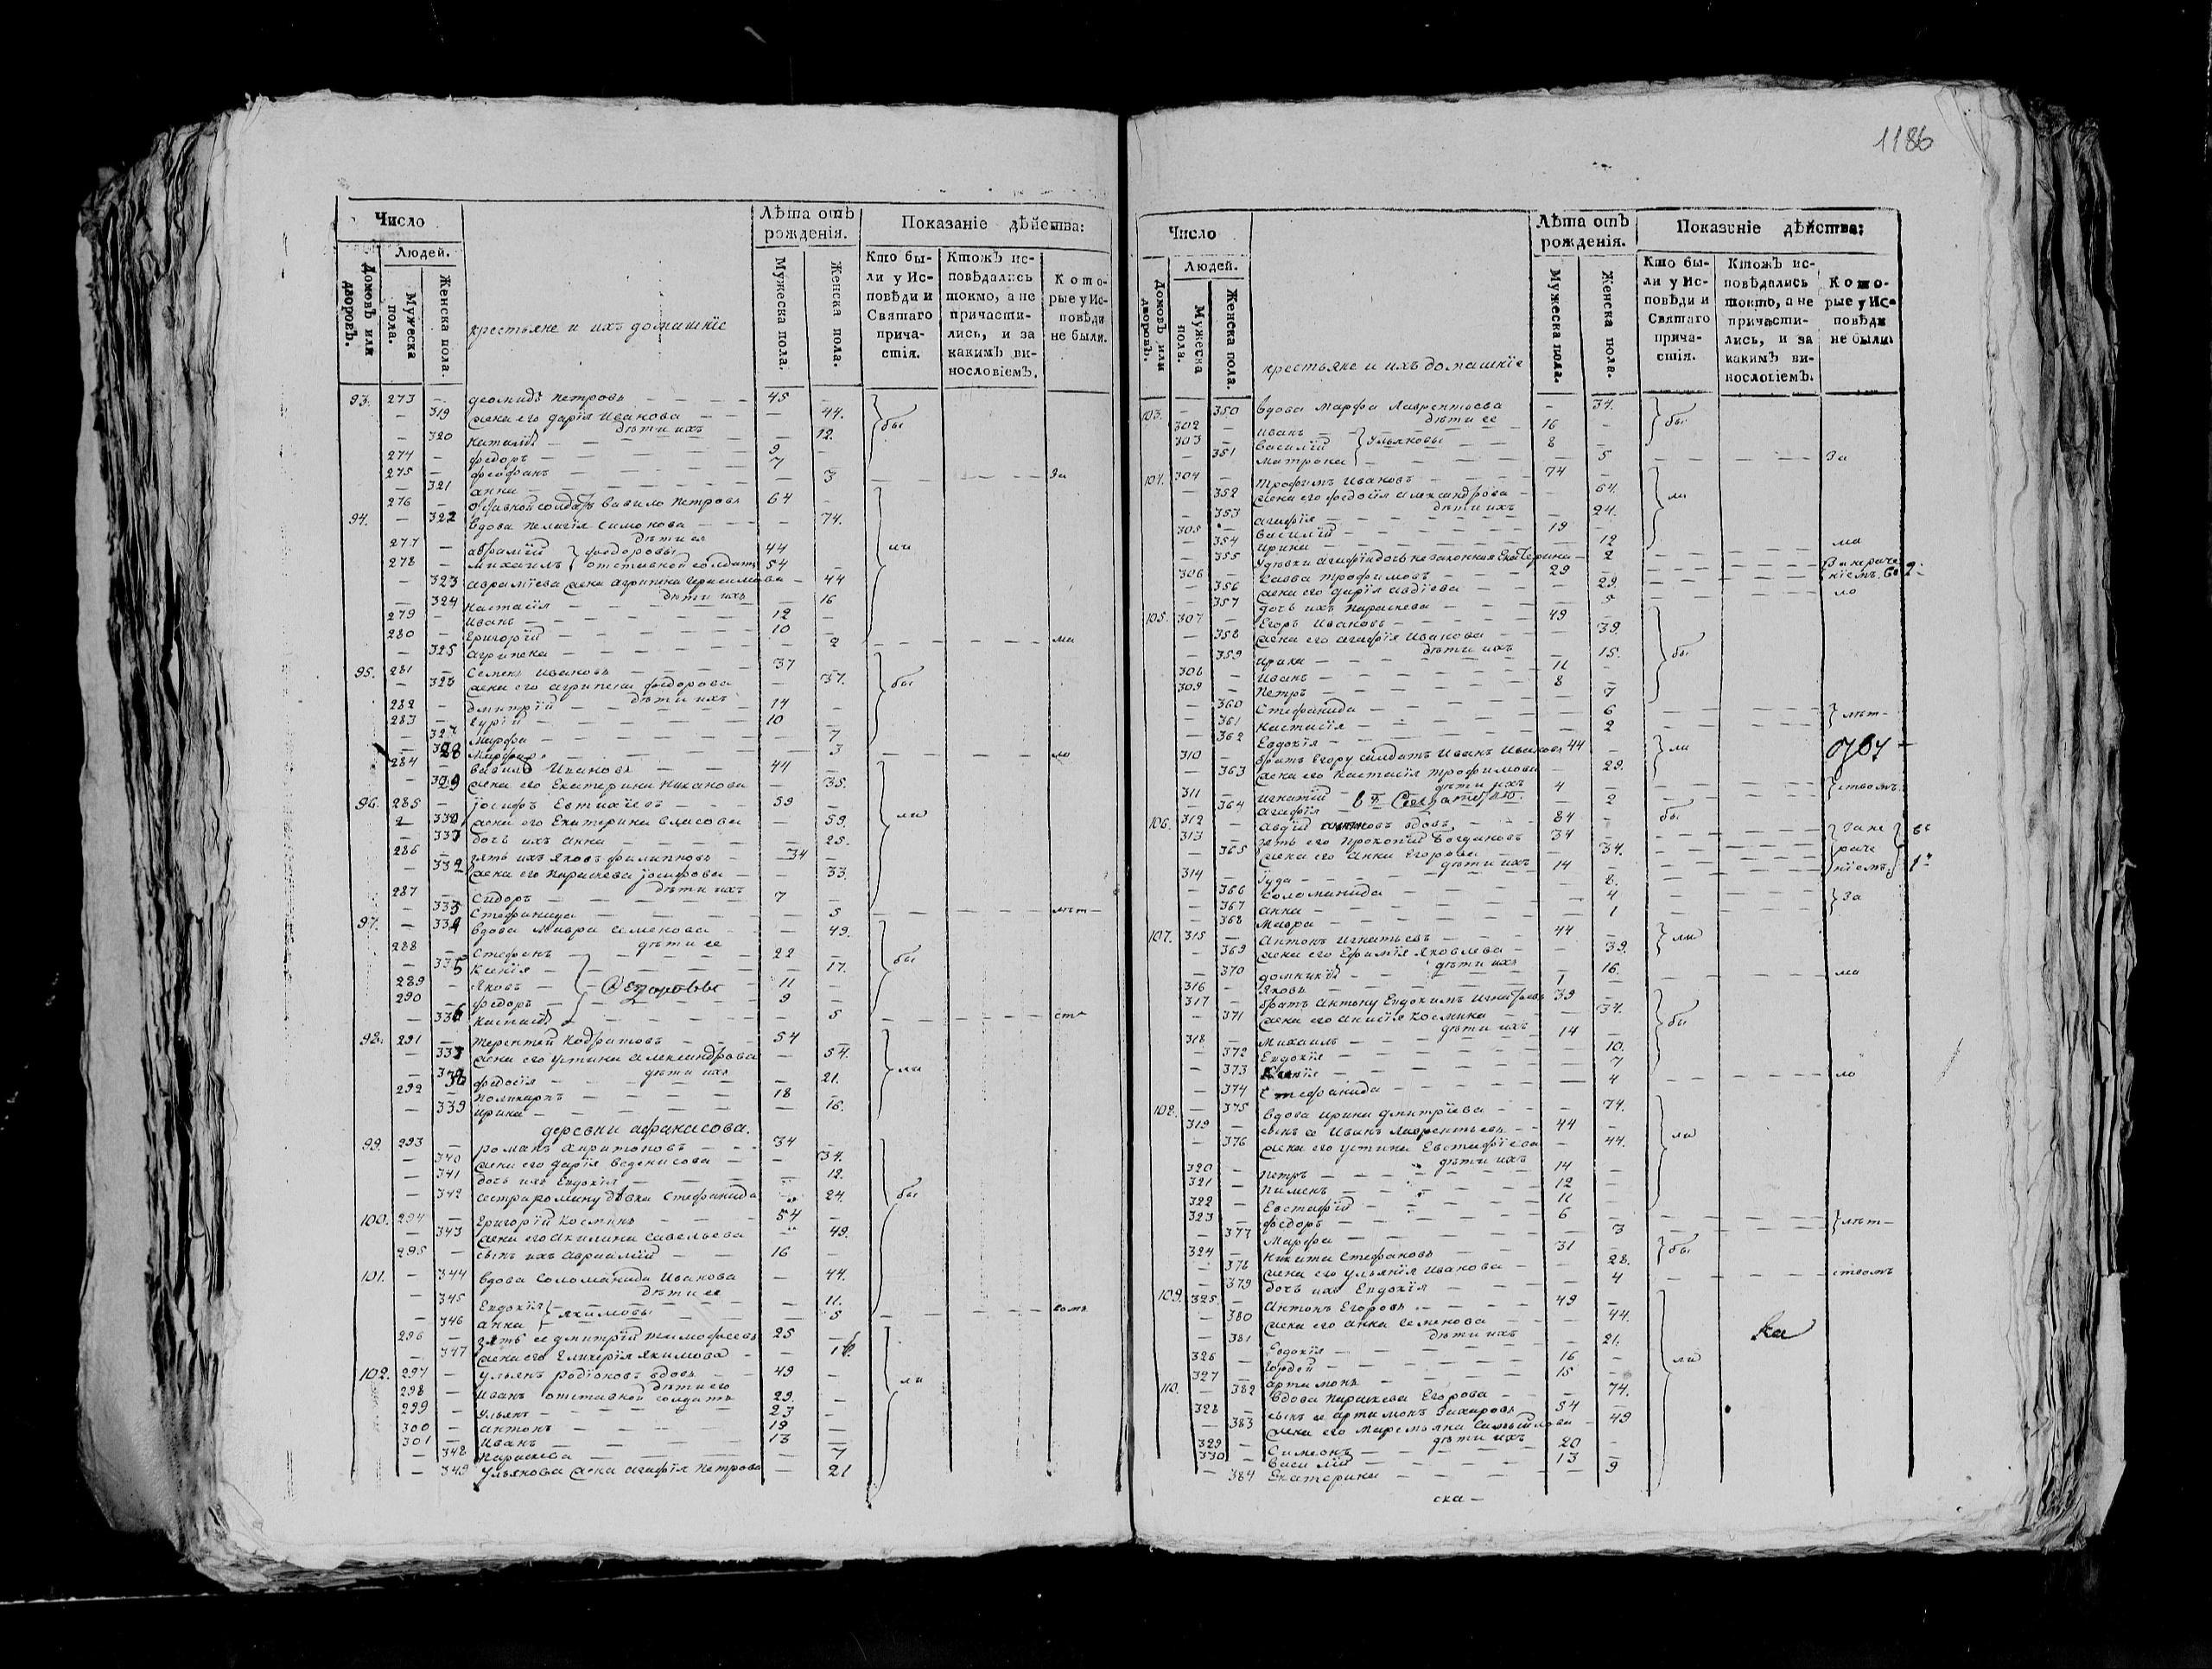 1186
Число
Людей.
Домовъ или дворовъ.
Мужеска пола.
Женска пола.
крестьяне и ихъ домашніе
Лѣта отъ рожденія.
Мужеска пола.
Женска пола.
Показаніе дѣйства:
Кто бы-
ли у Ис-
повѣди и
Святаго
прича-
стія.
Ктожъ ис-
повѣдались
токмо, а не
причасти-
лись, и за
какимъ ви-
нословіемъ.
Кото-
рые у Ис-
повѣди
не были.
93. 273 — Деомидъ Петровъ — 45 —
— 319 жена его Дарія Иванова — 44. бы
дѣти ихъ
— 320 Наталія — 12.
274 — Федоръ — 9 —
275 — Феофанъ — 7
— 321 Анна — 3 За
276 — солдатъ Вавило Петровъ 64 —
94. — 322 вдова Пелагія Симонова — 74.
дѣти ея
277 — Авраамій } Федоровы 44 ли
278 — Михаилъ } отставной солдатъ 54 —
— 323 Авраміева жена Агрипина Герасимова — 44
дѣти ихъ
— 324 Настасія — 16
279 — Иванъ — 12 —
280 — Григорій — 10 —
— 325 Агрипена — 2 ли
95. 281 — Семенъ Ивановъ — 37
— 326 жена его Агрипена Федорова — 37. бы
дѣти ихъ
282 — Дмитрій — 14 —
283 — Гурій — 10 —
— 327 Марфа — 7
— 328 Марфа — 3 ло
284 — Вавило Ивановъ 44 —
— 329 жена его Екатерина Никанова — 35.
96. 285 — Іосифъ Евтихіевъ — 59 —
— 330 жена его Екатерина Власова — 59. ли
— 331 дочь ихъ Анна — 25.
286 — зять ихъ Яковъ Филиповъ — 34 —
— 332 жена его Параскева Іосифова — 33.
дѣти ихъ
287 — Сидоръ — 7 —
— 333 Стефанида — 5 лѣт—
97. — 334 вдова Мавра Семенова — 49.
дѣти ее
288 — Стефанъ — 22 — бы
— 335 Ксенія — 17.
289 — Яковъ — 11 —
290 — Федоръ — 9 —
— 336 Настасія — 5 ст—
98. 291 — Терентей Кодратовъ — 54
— 337 жена его Устина Александрова — 54.
дѣти ихъ
— 338 Федосія — 21. ли
292 — Поликарпъ — 18 —
— 339 Ирина — 16.
деревни Афанасова.
99. 293 — Романъ Харитоновъ — 34 —
— 340 жена его Дарія Веденисова — 34.
— 341 дочь ихъ Евдокія — 12.
— 342 сестра Роману дѣвка Стефанида — 24. бы
100. 294 — Григорій Косминъ — 54 —
— 343 жена его Акилина Савельева — 49.
295 — сынъ ихъ Авраамій — 16 —
101. — 344 вдова Соломанида Иванова — 44.
дѣти ее
— 345 Евдокія } Якимовы — 11.
— 346 Анна } — 5 вомъ
296 — зять ее Дмитрій Тимофеевъ 25 —
— 347 жена его Гликерія Якимова —
102. 297 — Ульянъ Родіоновъ вдовъ — 49 — ли
дѣти его
298 — Иванъ отставной солдатъ 29. —
299 — Ульянъ — 23 —
300 — Антонъ — 19 —
301 — Иванъ — 13 —
— 348 Параскева — 7
— 349 Ульянова жена Агафія Петрова — 21
Число
Людей.
Домовъ или дворовъ.
Мужеска пола.
Женска пола.
крестьяне и ихъ домашніе
Лѣта отъ рожденія.
Мужеска пола.
Женска пола.
Показаніе дѣйства:
Кто бы-
ли у Ис-
повѣди и
Святаго
прича-
стія.
Ктожъ ис-
повѣдались
токмо, а не
причасти-
лись, и за
какимъ ви-
нословіемъ.
Кото-
рые у Ис-
повѣди
не были.
103. — 350 вдова Марфа Лаврентьева — 34.
дѣти ее
302 — Иванъ } Ульяновы 16 — бы
303 — Василій } 8 —
— 351 Матрона } — 5 За
104. 304 — Трофимъ Ивановъ — 74 —
— 352 жена его Федосія Александрова — 64. ли
дѣти ихъ
— 353 Агафія — 24.
305 — Василій — 19 —
— 354 Ирина — 12 ма
— 355 У дѣвки Агафіи дочь незаконная Екатерина — 2
306 — Савва Трофимовъ — 29 —
— 356 жена его Дарія Авдіева — 29.
— 357 дочь ихъ Параскева — 5 ло
105. 307 — Егоръ Ивановъ — 49 —
— 358 жена его Агафія Иванова — 39.
дѣти ихъ
— 359 Ирина — 15. бы
308 — Иванъ — 11 —
309 — Петръ — 8 —
— 360 Стефанида — 7
— 361 Настасія — 6 лѣт—
— 362 Евдокія — 2
310 — братъ Егору солдатъ Иванъ Ивановъ 44 — ли
— 363 жена его Настасія Трофимова — 29.
дѣти ихъ
311 — Игнатій — 4 — ствомъ
— 364 Агафія — 2
106. 312 — Авдій вдовъ — 84 — бы
313 — зять его Прокопій Богдановъ 34 —
— 365 жена его Анна Егорова — 34.
дѣти ихъ
314 — Іуда — 14 —
— 366 Соломанида — 8.
— 367 Анна — 4 За
— 368 Мавра — 1
107. 315 — Антонъ Игнатьевъ — 44 —
— 369 жена его Ефимія Яковлева — 39. ли
дѣти ихъ
— 370 Домникія — 16.
316 — Яковъ — 1 — ма
317 — братъ Антону Евдокимъ Игнатьевъ 39 —
— 371 жена его Анисія Космина — 34. бы
дѣти ихъ
318 — Михаилъ — 14 —
— 372 Евдокія — 10.
— 373 — 7
— 374 Стефанида — 4 ло
108. — 375 вдова Ирина Дмитріева — 74.
319 — сынъ ее Иванъ Лаврентьевъ — 44 —
— 376 жена его Устина Евстафіева — 44. ли
дѣти ихъ
320 — Петръ — 14 —
321 — Пименъ — 12 —
322 — Евстафій — 11 —
323 — Федоръ — 6 —
— 377 Марфа — 3 лѣт—
324 — Никита Стефановъ — 31 — бы
— 378 жена его Ульянія Иванова — 28.
— 379 дочь ихъ Евдокія — 4 ствомъ
109. 325 — Антонъ Егоровъ — 49 —
— 380 жена его Анна Семенова — 44.
дѣти ихъ
— 381 Евдокія — 21.
326 — Гордей — 16 — ли
327 — Артамонъ — 15 —
110. — 382 вдова Параскева Егорова — 74.
328 — сынъ ее Артамонъ Захаровъ 54 —
— 383 жена его Маремьяна — 49
дѣти ихъ
329 — Симеонъ — 20 —
330 — Василій — 13 —
— 384 Екатерина — 9
ска—